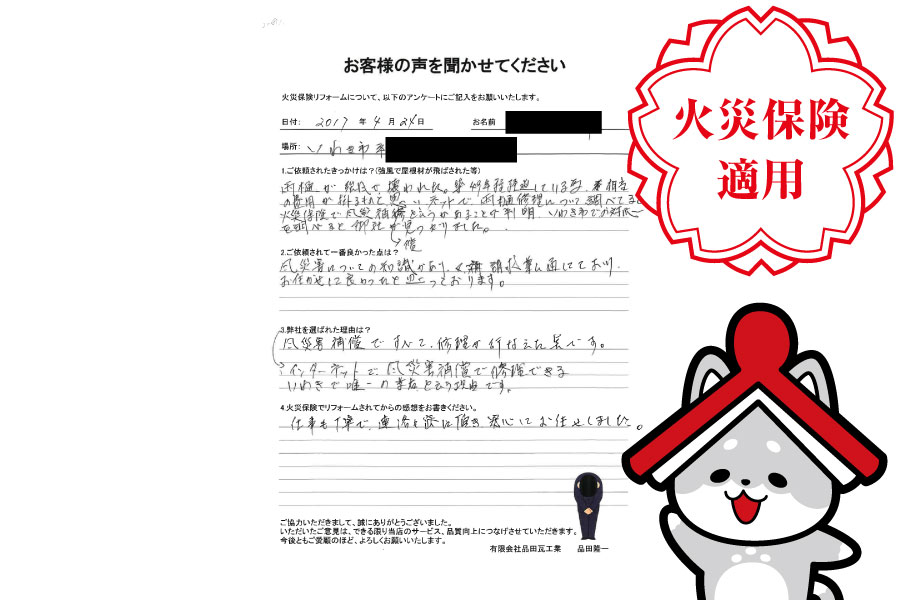 お客様の声を聞かせてください
火災保険リフォームについて、以下のアンケートにご記入をお願いいたします。
日付: 2017 年 4 月 24 日 お名前
場所: いわき市
1.ご依頼されたきっかけは?(強風で屋根材が飛ばされた等)
雨樋が 壊われた。築49年程経過している為、
の費用が掛るまれと思い ネットで 雨樋修理について調べてると
火災保険で風災補償というがあることが判明、いわき市で
を調べると御社が見つかりました。
償
2.ご依頼されて一番良かった点は?
風災害についての知識があり、 請求業務に通じており、
お任せして良かったと思っております。
3.弊社を選ばれた理由は?
風災害補償ですべて、修理が行なえた点です。
インターネットで、風災害補償で修理できる
いわきで唯一の業者という理由です。
4.火災保険でリフォームされてからの感想をお書きください。
仕事も丁寧で、連絡も 安心してお任せしました。
ご協力いただきまして、誠にありがとうございました。
いただいたご意見は、できる限り当店のサービス、品質向上につなげさせていただきます。
今後ともご愛顧のほど、よろしくお願いいたします。
有限会社品田瓦工業 品田隆一
火災保険
適用